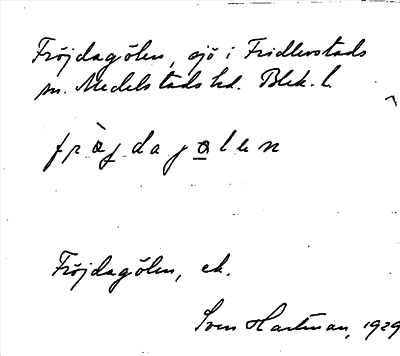 Fröjdagölen, sjö i Fridlevstads
sn. Medelstads hd. Blek. l.
fröjdagölen
Fröjdagölen, ek.
Sven Hartman, 1929